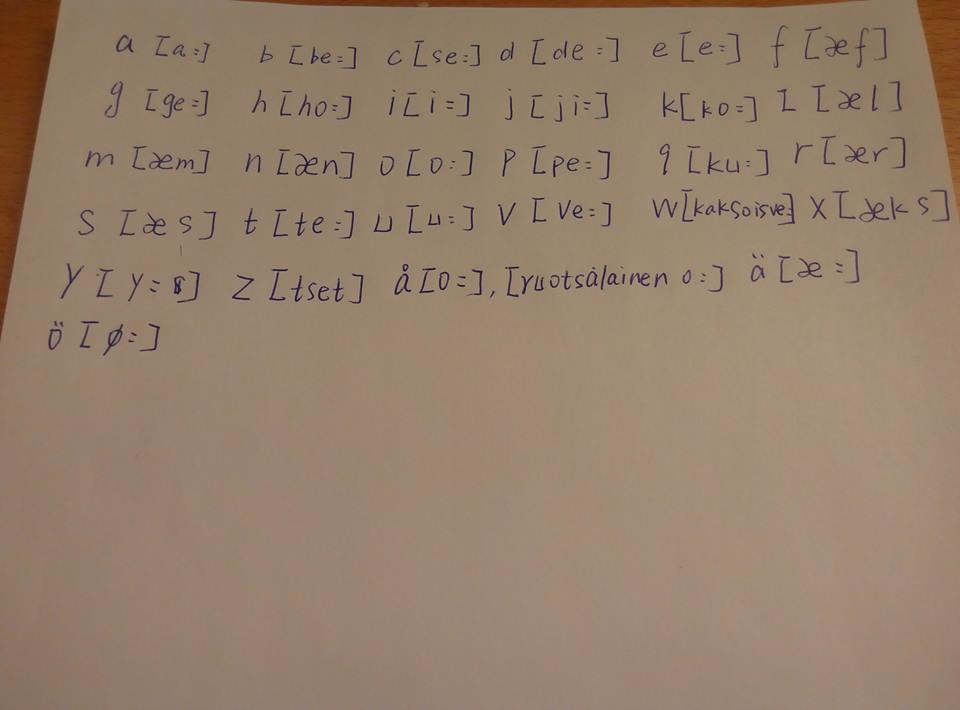 a [a:] b [be:] c [se:] d [de:] e [e:] f [æf]
g [ge:] h [ho:] i [i:] j [ji:] k [ko:] l [æl]
m [æm] n [æn] o [o:] p [pe:] q [ku:] r [ær]
s [æs] t [te:] u [u:] v [ve:] w [kaksoisve:] x [æks]
y [y:] z [tset] å [o:], [ruotsalainen o:] ä [æ:]
ö [ø:]